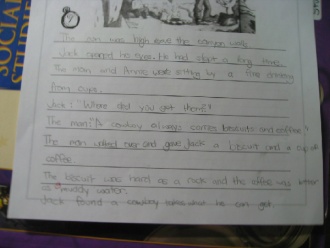 SOCIAL
STUDIES
The sun was high over the canyon walls
Jack opened his eyes. He had slept a long time.
The man and Annie were sitting by a fire drinking
from cups.
Jack: "Where did you get them?"
The man: "A cowboy always carries biscuits and coffee."
The man walked over and gave Jack a biscuit and a cup of
coffee.
The biscuit was hard as a rock and the coffee was bitter
as muddy water.
Jack found a cowboy takes what he can get.